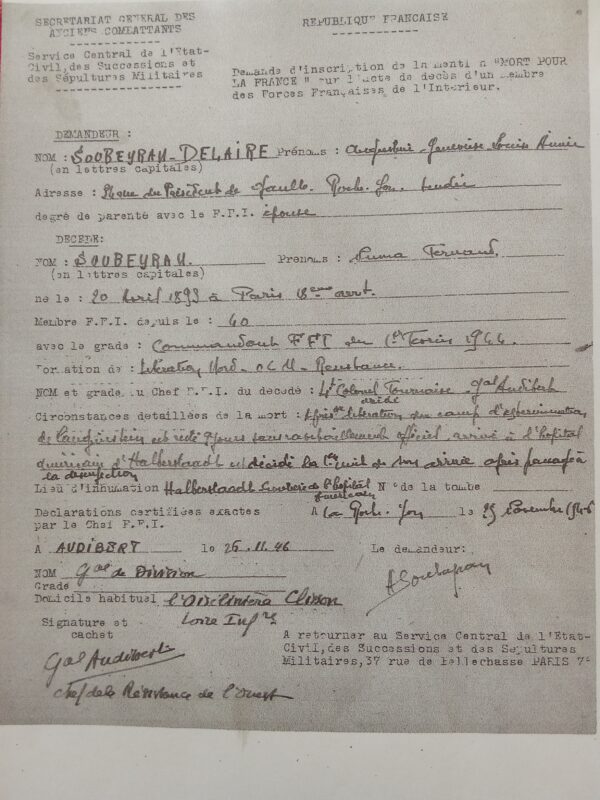 SECRETARIAT GENERAL DES
ANCIENS COMBATTANTS
Service Central de l'Etat-
Civil, des Successions et
des Sépultures Militaires
REPUBLIQUE FRANCAISE
Demande d'inscription de la menti n "MORT POUR
LA FRANCE" sur l'acte de décès d'un membre
des Forces Françaises de l'Interieur.
DEMANDEUR :
NOM : SOUBEYRAN-DELAIRE Prénoms : Augustine Genevieve Louise Aimée
(en lettres capitales)
Adresse : Rue du Président de Gaulle. Roche. Yon. Vendée
degré de parenté avec le F.F.I. épouse
DECEDE:
NOM : SOUBEYRAN. Prenoms : Numa Fernand.
(en lettres capitales)
ne le : 20 Avril 1893 à Paris 18eme arrt.
Membre F.F.I. depuis le : 40
avec le grade : Commandant FFI du 1er Fevrier 1944
Formation de : Libération Nord - OCM - Resistance.
NOM et grade du Chef F.F.I. du décédé : Lt Colonel Gal Audibert
Circonstances detaillées de la mort : Après libération du camp d'extermination
de Langenstein est resté jours sans ravitaillement officiel, arrivé à l'hopital
américain d'Halberstaadt est décédé la 1ere nuit de son arrivée après passage à
la desinfection
Lieu d'inhumation Halberstaadt l'hopital N° de la tombe
américain
Déclarations certifiées exactes A La Roche. Yon le 25 Novembre 1946
par le Chef F.F.I.
A AUDIBERT le 26.11.46 Le demandeur:
NOM Gal de Division
Grade
Domicile habituel Clisson
Signature et Loire Infre
cachet
A retourner au Service Central de l'Etat-
Civil, des Successions et des Sépultures
Militaires, 37 rue de Bellechasse PARIS 7e
Gal Audibert
Chef de la Résistance de l'Ouest